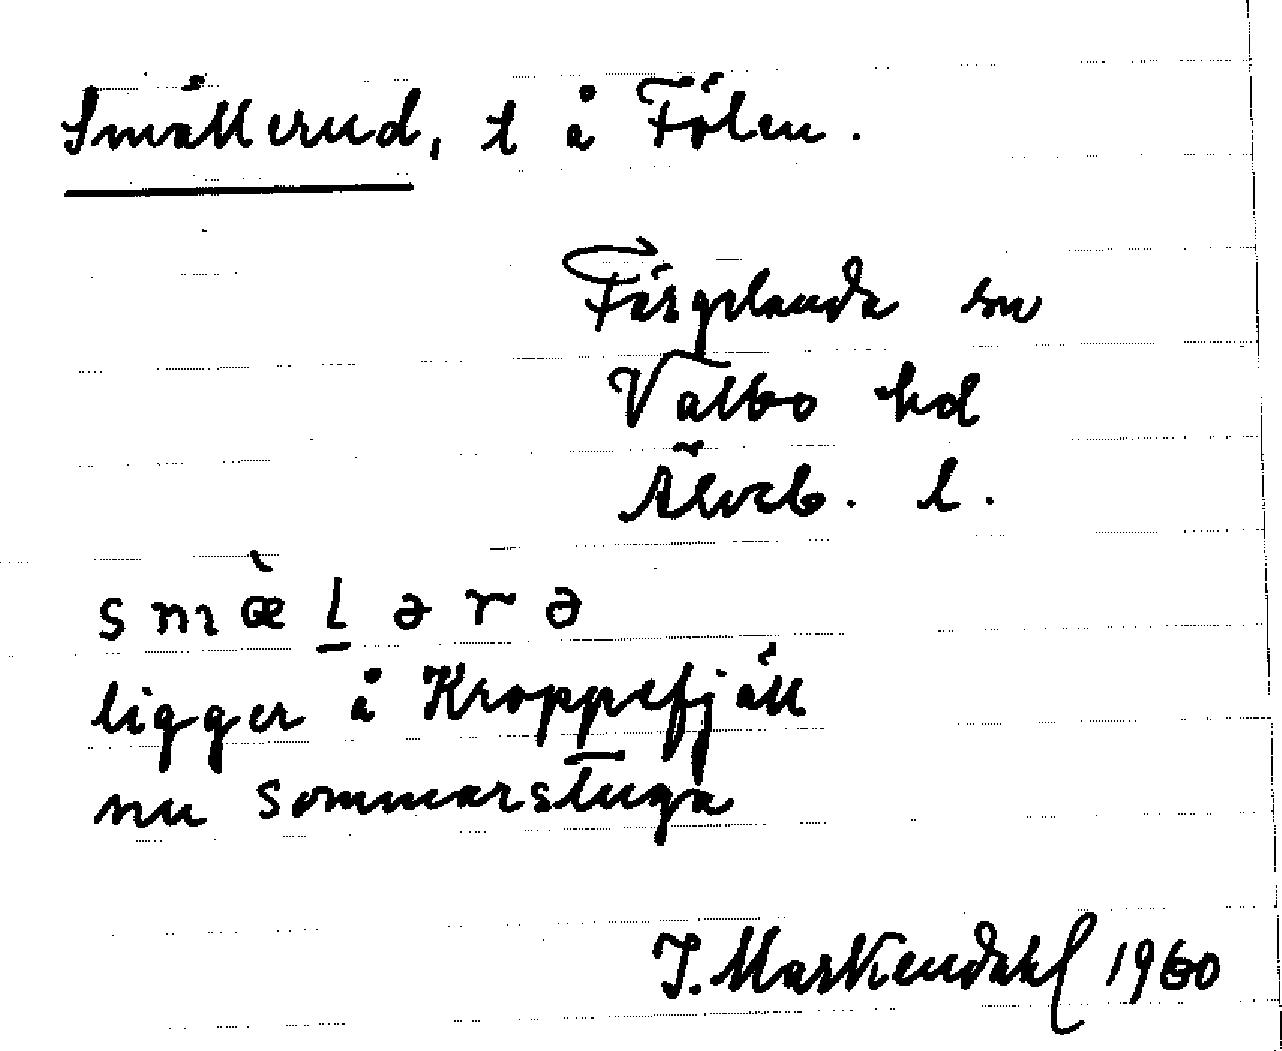 Smällerud, t å Fölen.
Färgelanda sn
Valbo hd
Älvsb. l.
s m æ̀ L ə r ə
ligger å Kroppefjäll
nu sommarstuga
J. Markendahl 1960